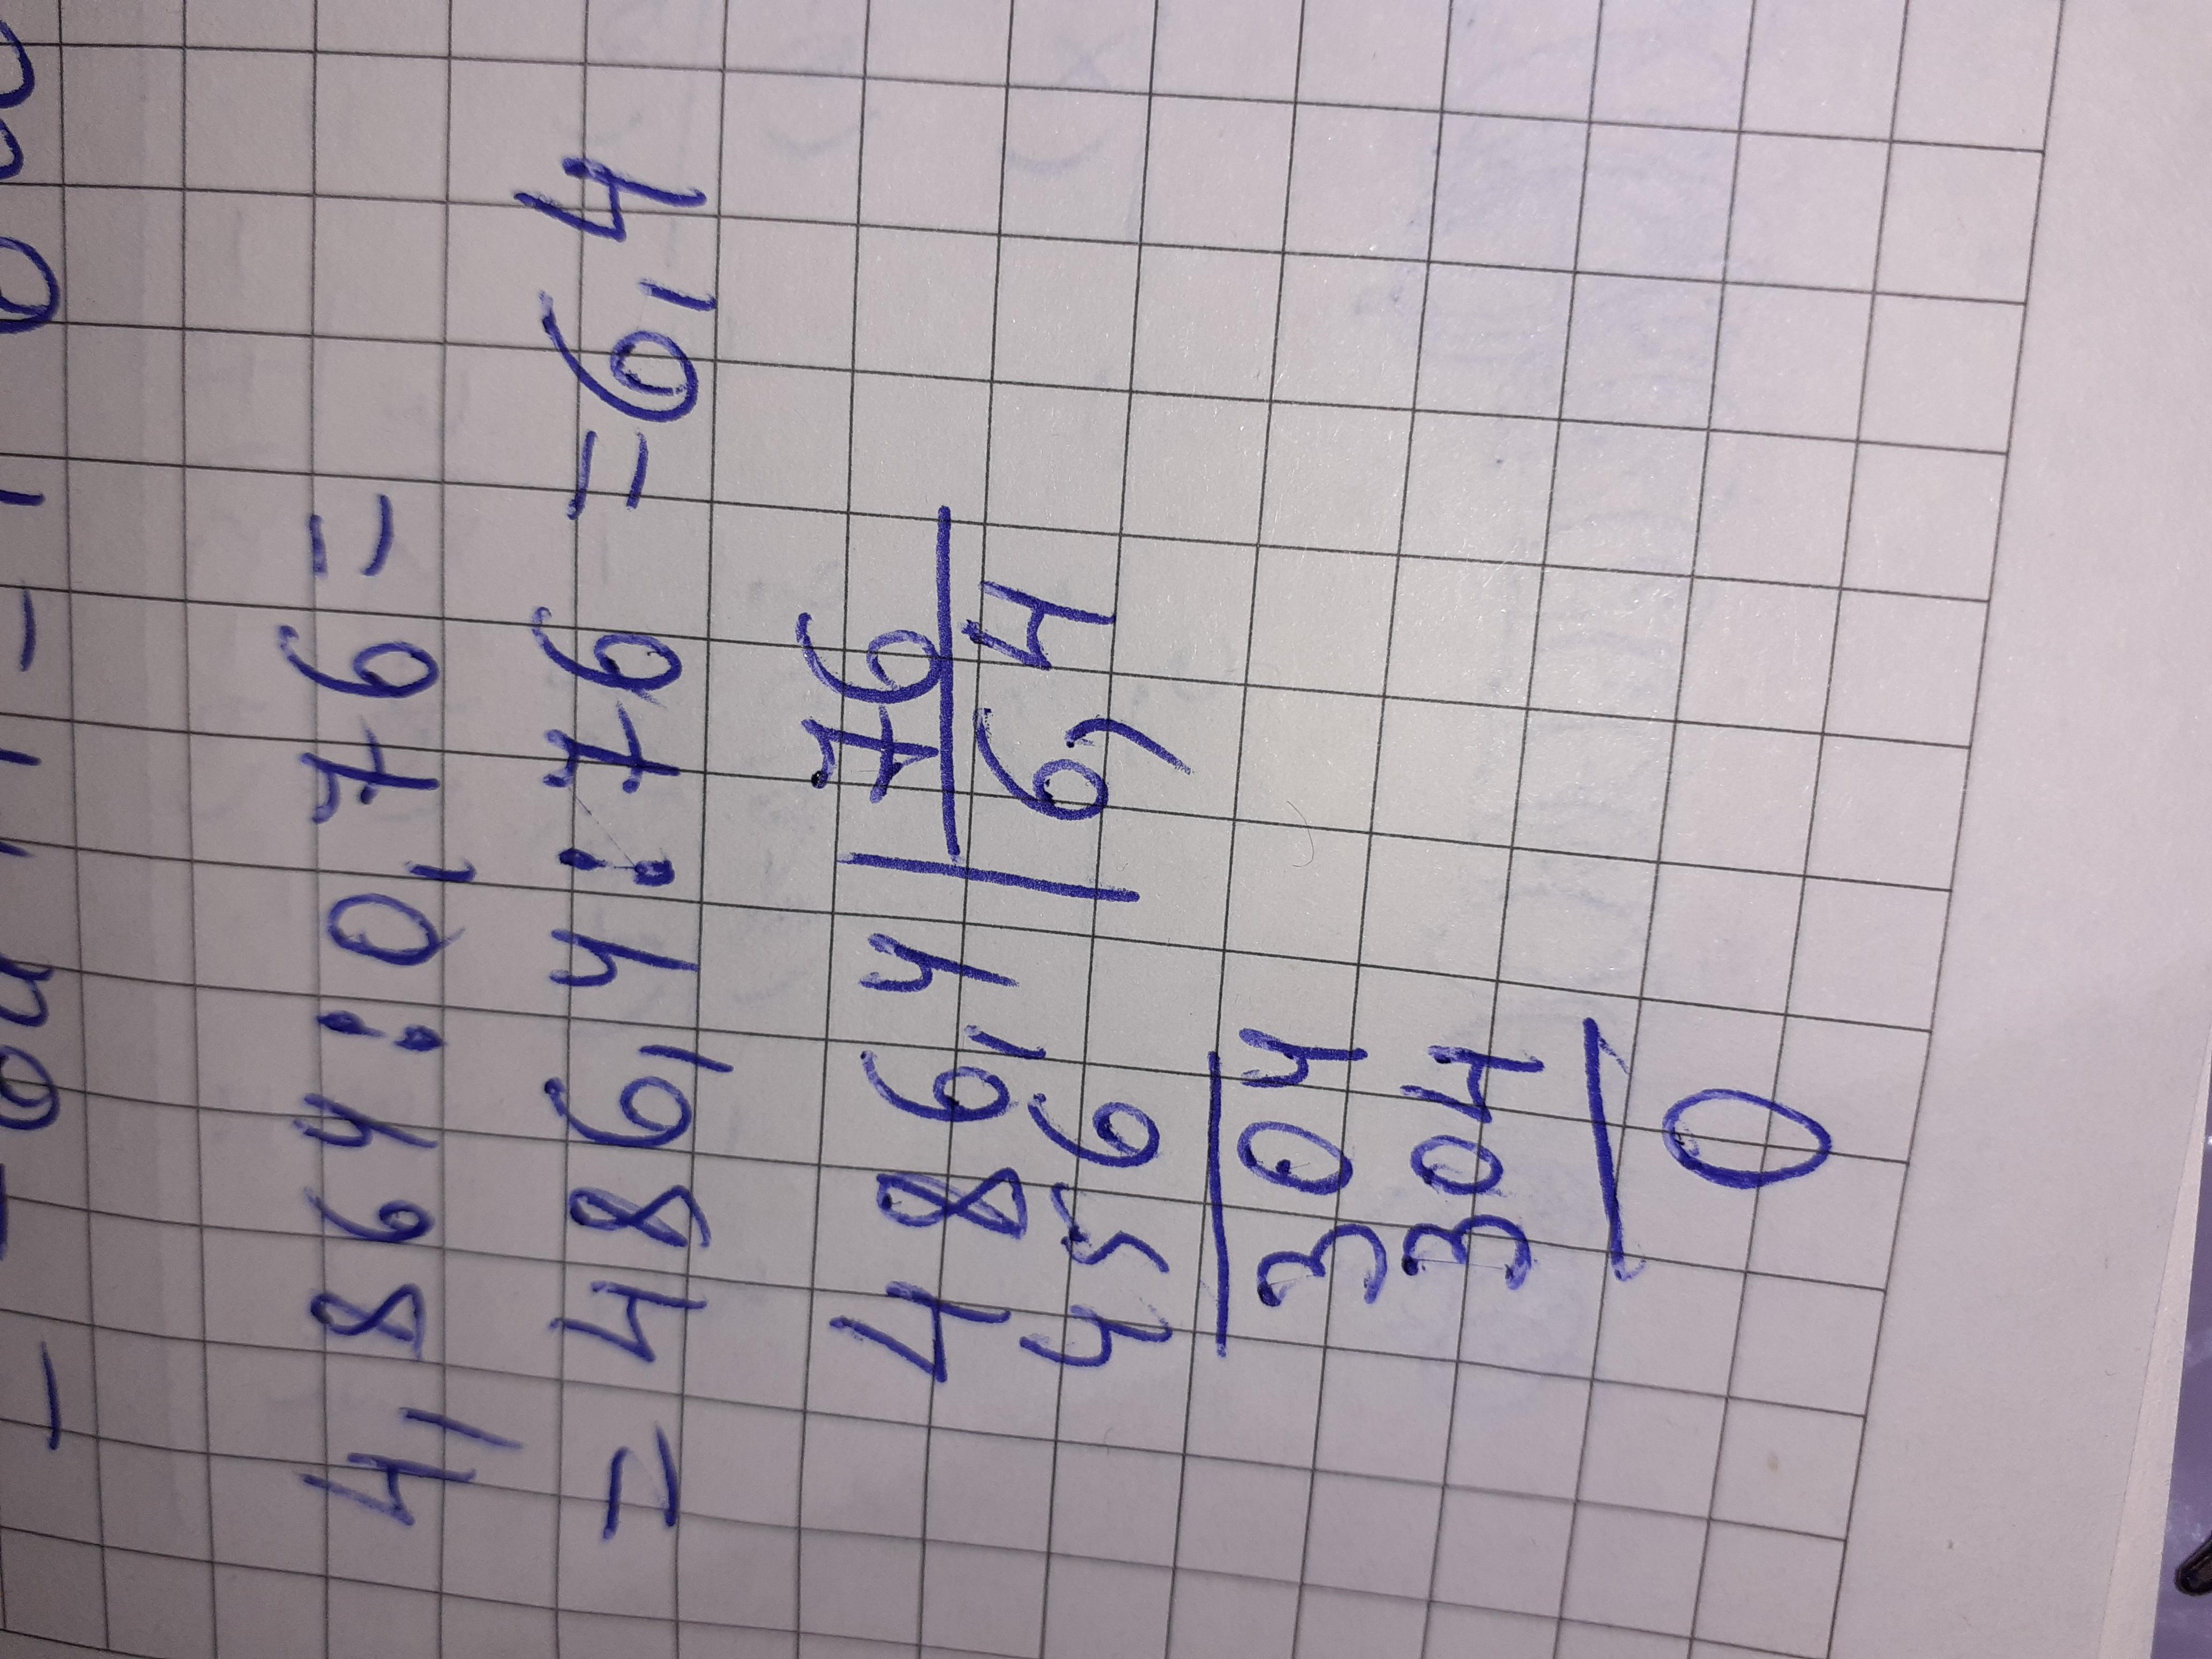 4,864:0,76=
=486,4:76=6,4
486,4|76
456 6,4
304
304
0